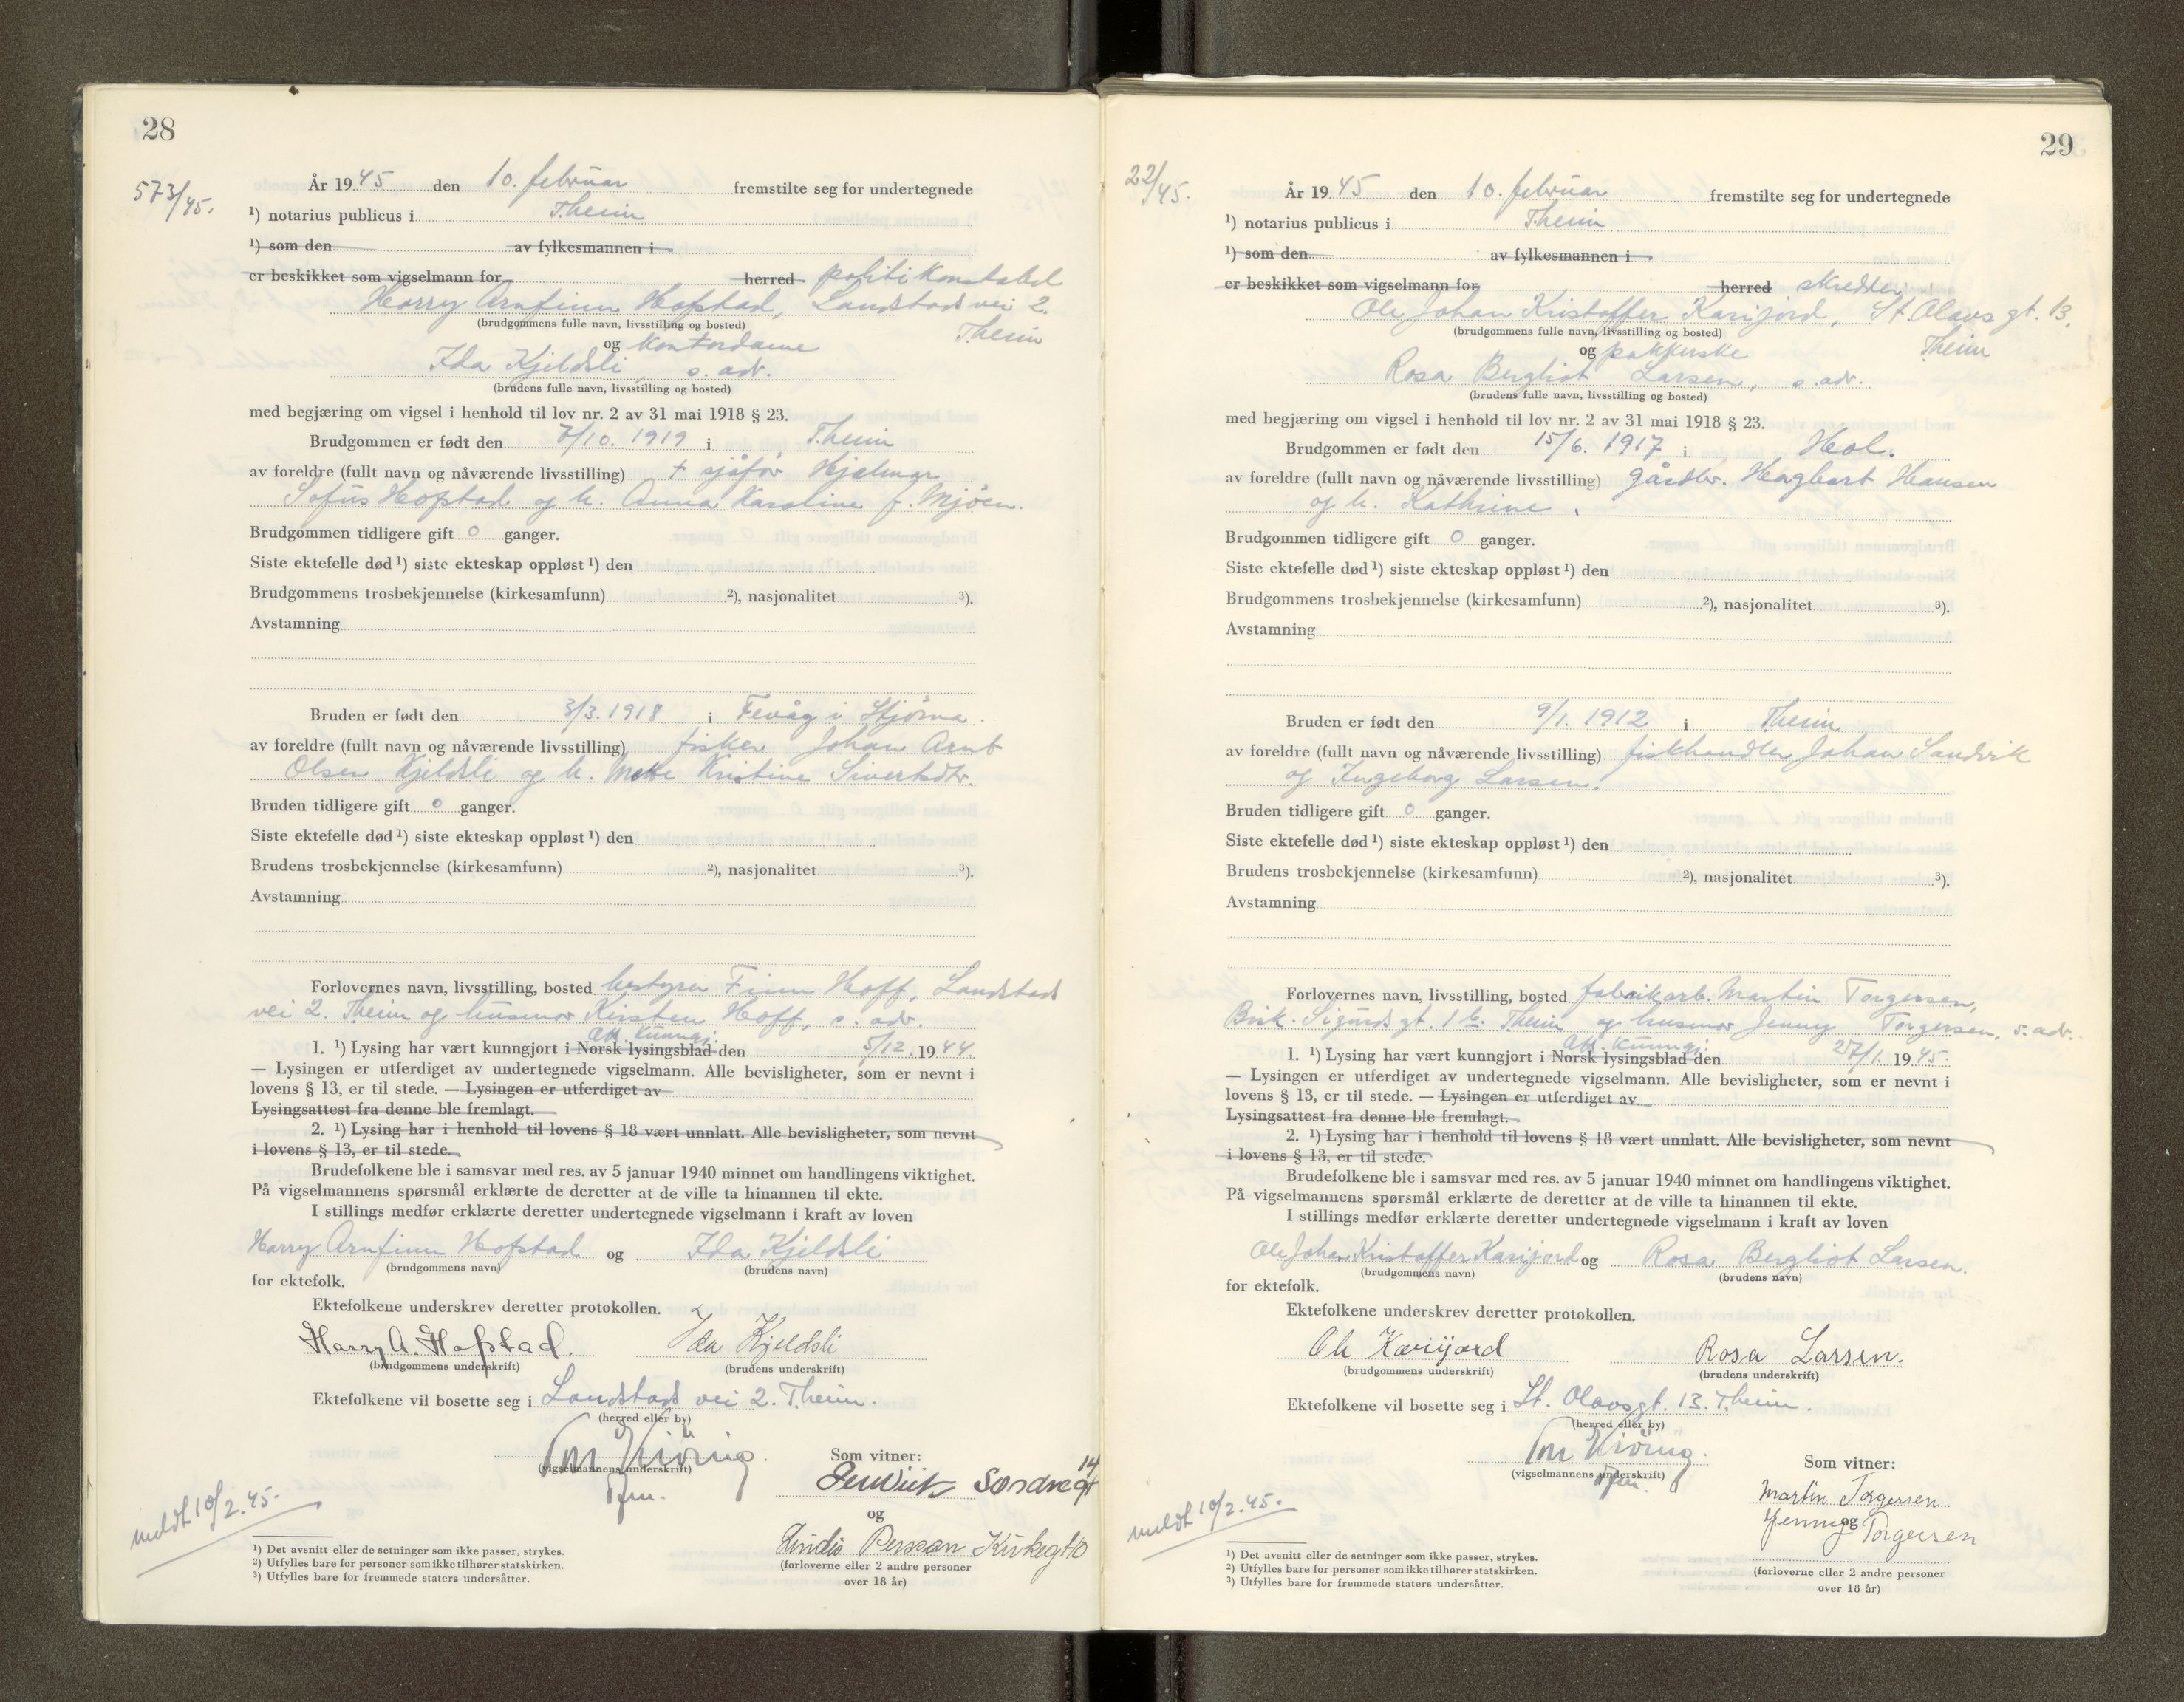 28
573/45.
År 1945 den 10. februar fremstilte seg for undertegnede
¹) notarius publicus i Theim
¹) som den av fylkesmannen i
er beskikket som vigselmann for herred politikonstabel
Harry Arnfinn Hofstad, Landstads vei 2.
(brudgommens fulle navn, livsstilling og bosted) Theim
og kontordame
Ida Kjeldsli, s. adr.
(brudens fulle navn, livsstilling og bosted)
med begjæring om vigsel i henhold til lov nr. 2 av 31 mai 1918 § 23.
Brudgommen er født den 7/10. 1919 i Theim
av foreldre (fullt navn og nåværende livsstilling) + sjåfør Hjalmar
Sofus Hofstad og h. Anna Karoline f. Mjøen.
Brudgommen tidligere gift 0 ganger.
Siste ektefelle død ¹) siste ekteskap oppløst ¹) den
Brudgommens trosbekjennelse (kirkesamfunn) ²), nasjonalitet ³).
Avstamning
Bruden er født den 3/3. 1918 i Fevåg i Stjørna.
av foreldre (fullt navn og nåværende livsstilling) fisker Johan Arnt
Olsen Kjeldsli og h. Mette Kristine Sivertsdtr.
Bruden tidligere gift 0 ganger.
Siste ektefelle død ¹) siste ekteskap oppløst ¹) den
Brudens trosbekjennelse (kirkesamfunn) ²), nasjonalitet ³).
Avstamning
Forlovernes navn, livsstilling, bosted bestyrer Finn Hoff, Landstads
vei 2. Theim og husmor Kirsten Hoff, s. adr.
Att. kunngj.
1. ¹) Lysing har vært kunngjort i Norsk lysingsblad den 5/12. 1944.
— Lysingen er utferdiget av undertegnede vigselmann. Alle bevisligheter, som er nevnt i
lovens § 13, er til stede. — Lysingen er utferdiget av
Lysingsattest fra denne ble fremlagt.
2. ¹) Lysing har i henhold til lovens § 18 vært unnlatt. Alle bevisligheter, som nevnt
i lovens § 13, er til stede.
Brudefolkene ble i samsvar med res. av 5 januar 1940 minnet om handlingens viktighet.
På vigselmannens spørsmål erklærte de deretter at de ville ta hinannen til ekte.
I stillings medfør erklærte deretter undertegnede vigselmann i kraft av loven
Harry Arnfinn Hofstad og Ida Kjeldsli
(brudgommens navn) (brudens navn)
for ektefolk.
Ektefolkene underskrev deretter protokollen.
Harry A. Hofstad. Ida Kjeldsli
(brudgommens underskrift) (brudens underskrift)
Ektefolkene vil bosette seg i Landstads vei 2. Theim.
(herred eller by)
Som vitner:
(vigselmannens underskrift)
Søndregt 14
og
Persson Kirkegt 10
(forloverne eller 2 andre personer
over 18 år)
meldt 10/2.45.
¹) Det avsnitt eller de setninger som ikke passer, strykes.
²) Utfylles bare for personer som ikke tilhører statskirken.
³) Utfylles bare for fremmede staters undersåtter.
29
22/45.
År 1945 den 10. februar fremstilte seg for undertegnede
¹) notarius publicus i Theim
¹) som den av fylkesmannen i
er beskikket som vigselmann for herred skredder
Ole Johan Kristoffer Karijord, St. Olavs gt. 13,
(brudgommens fulle navn, livsstilling og bosted) Theim
og pakkerske
Rosa Bergliot Larsen, s. adr.
(brudens fulle navn, livsstilling og bosted)
med begjæring om vigsel i henhold til lov nr. 2 av 31 mai 1918 § 23.
Brudgommen er født den 15/6. 1917 i Hol.
av foreldre (fullt navn og nåværende livsstilling) gårdbr. Hagbart Hansen
og h. Kathrine.
Brudgommen tidligere gift 0 ganger.
Siste ektefelle død ¹) siste ekteskap oppløst ¹) den
Brudgommens trosbekjennelse (kirkesamfunn) ²), nasjonalitet ³).
Avstamning
Bruden er født den 9/1. 1912 i Theim
av foreldre (fullt navn og nåværende livsstilling) fiskhandler Johan Sandvik
og Ingeborg Larsen.
Bruden tidligere gift 0 ganger.
Siste ektefelle død ¹) siste ekteskap oppløst ¹) den
Brudens trosbekjennelse (kirkesamfunn) ²), nasjonalitet ³).
Avstamning
Forlovernes navn, livsstilling, bosted fabrikarb. Martin Torgersen,
Bisk. Sigurds gt. 1 b. Theim og husmor Jenny Torgersen, s. adr.
Att. kunngj.
1. ¹) Lysing har vært kunngjort i Norsk lysingsblad den 27/1. 1945.
— Lysingen er utferdiget av undertegnede vigselmann. Alle bevisligheter, som er nevnt i
lovens § 13, er til stede. — Lysingen er utferdiget av
Lysingsattest fra denne ble fremlagt.
2. ¹) Lysing har i henhold til lovens § 18 vært unnlatt. Alle bevisligheter, som nevnt
i lovens § 13, er til stede.
Brudefolkene ble i samsvar med res. av 5 januar 1940 minnet om handlingens viktighet.
På vigselmannens spørsmål erklærte de deretter at de ville ta hinannen til ekte.
I stillings medfør erklærte deretter undertegnede vigselmann i kraft av loven
Ole Johan Kristoffer Karijord og Rosa Bergliot Larsen.
(brudgommens navn) (brudens navn)
for ektefolk.
Ektefolkene underskrev deretter protokollen.
Ole Karijord Rosa Larsen.
(brudgommens underskrift) (brudens underskrift)
Ektefolkene vil bosette seg i St. Olavsgt. 13. Theim.
(herred eller by)
Som vitner:
(vigselmannens underskrift)
Martin Torgersen
og
Jenny Torgersen
(forloverne eller 2 andre personer
over 18 år)
meldt 10/2.45.
¹) Det avsnitt eller de setninger som ikke passer, strykes.
²) Utfylles bare for personer som ikke tilhører statskirken.
³) Utfylles bare for fremmede staters undersåtter.